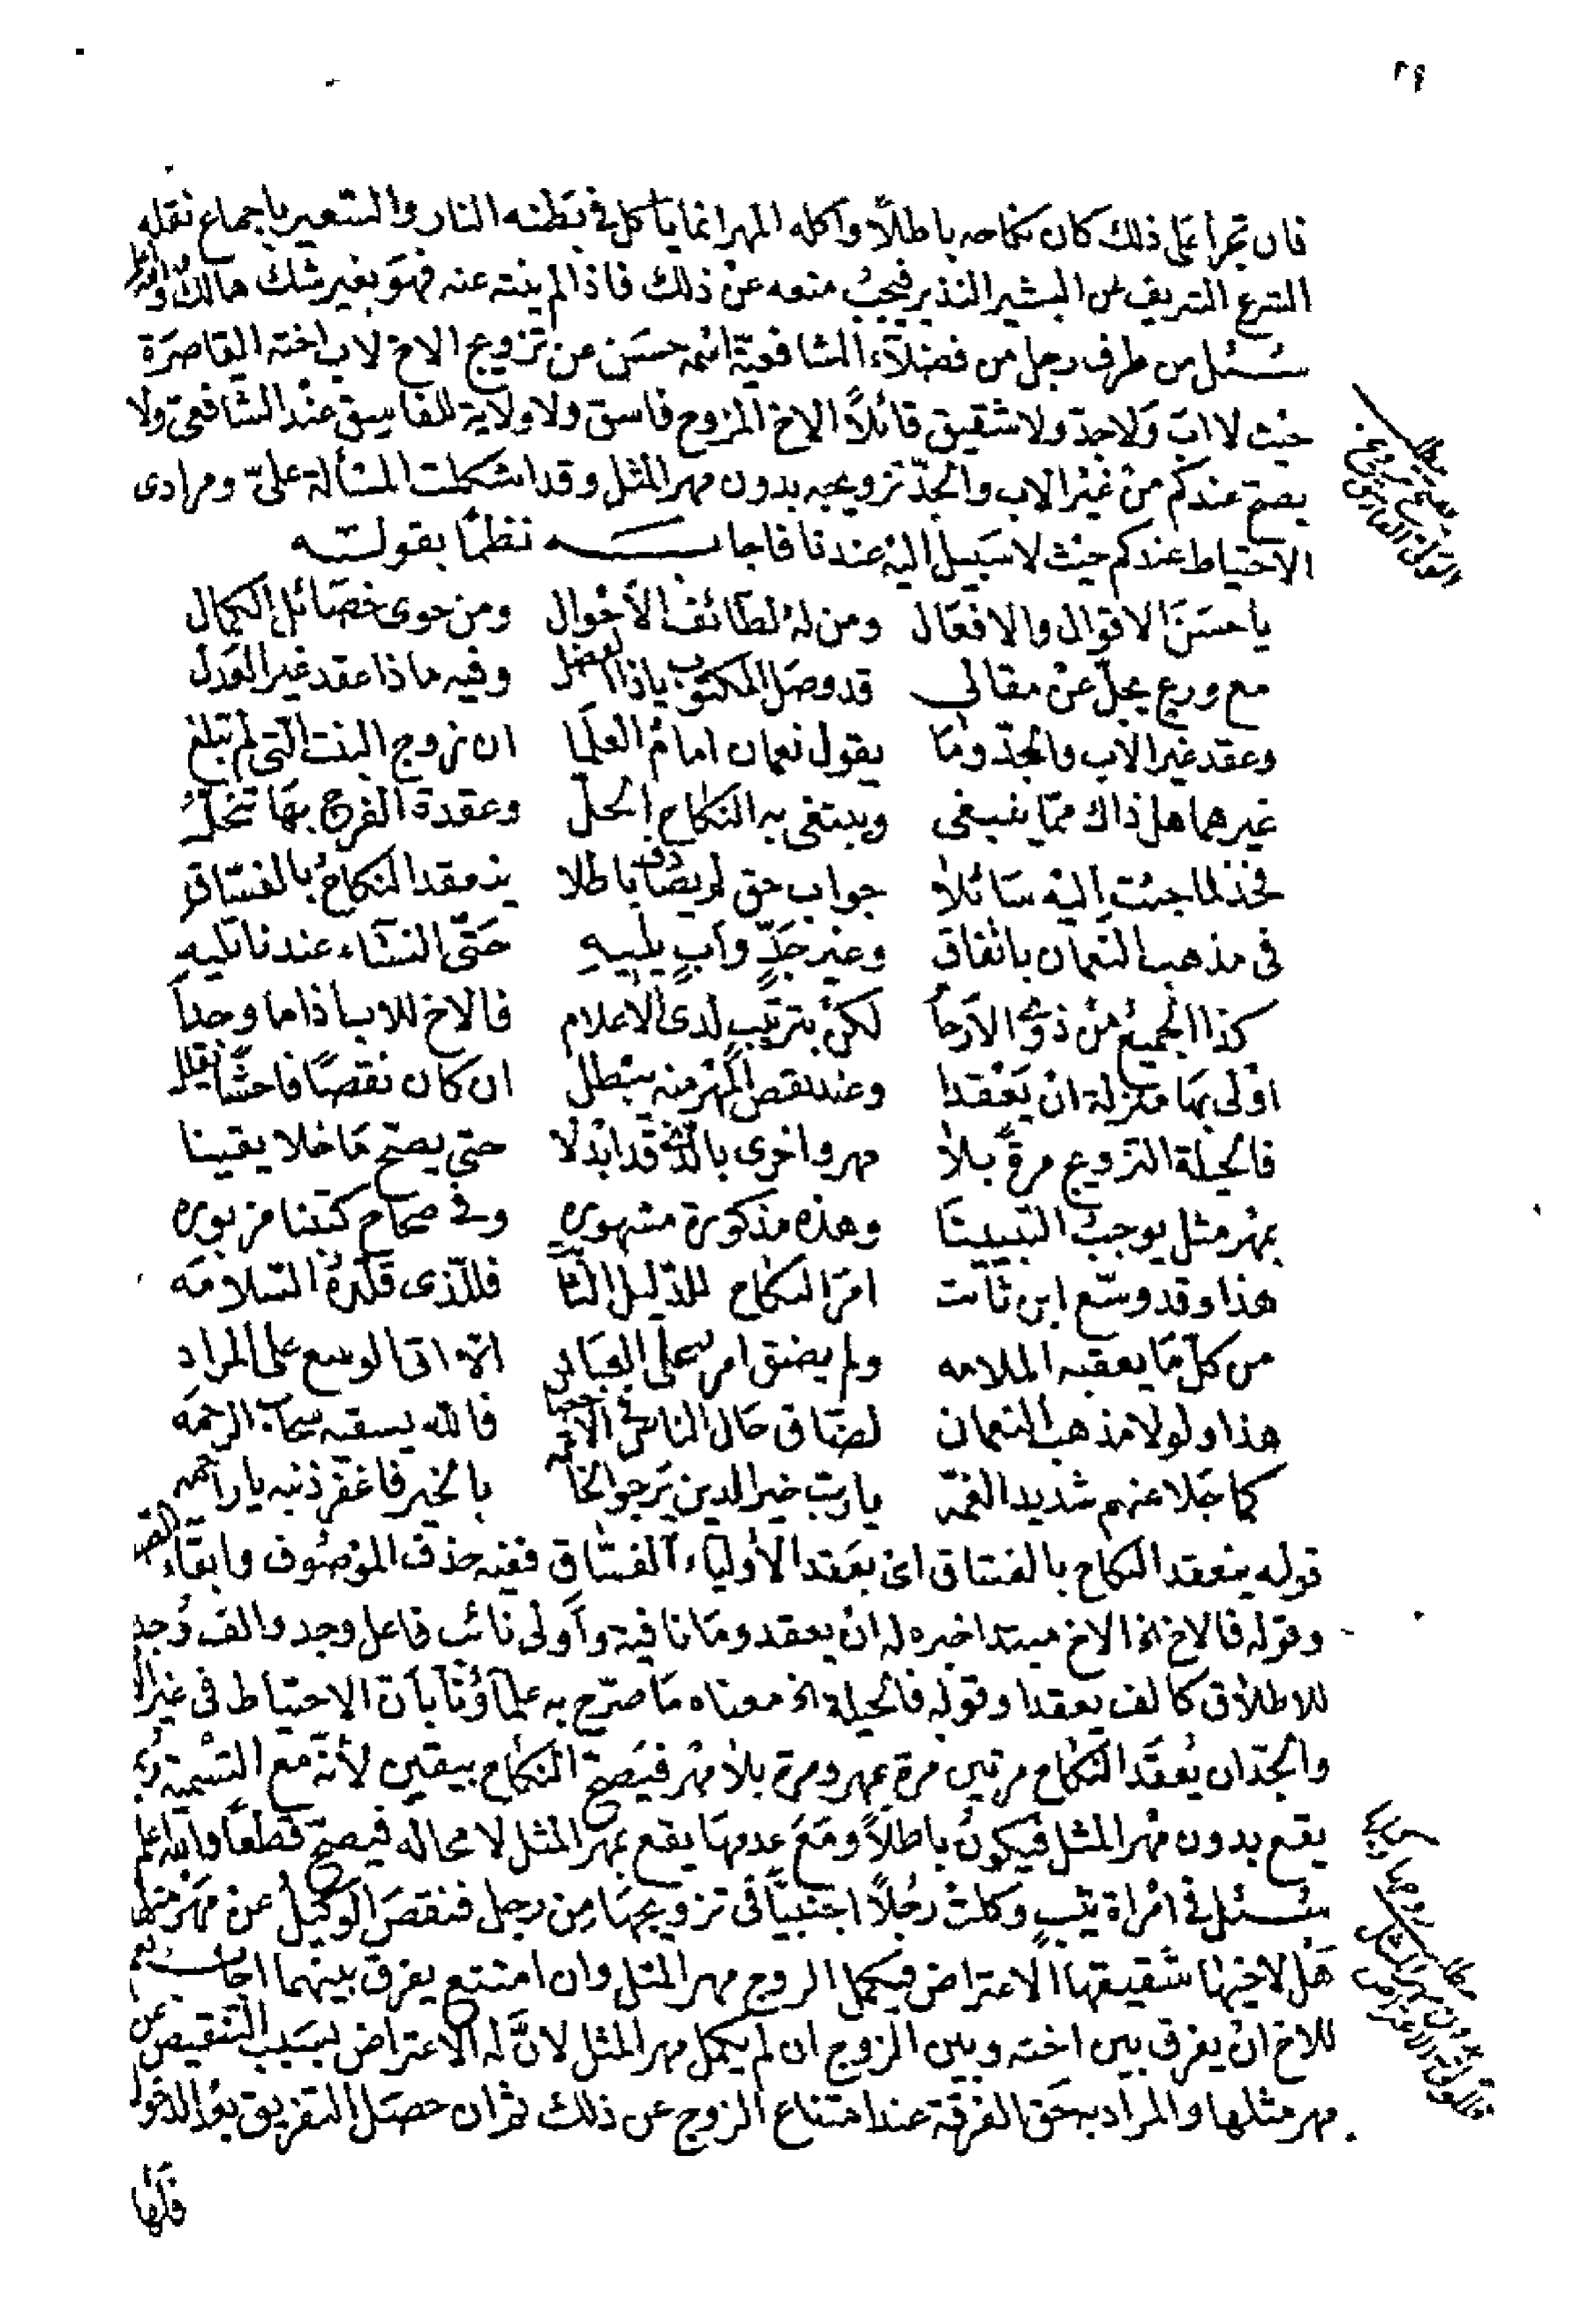 ٢٩
فان تجرأ على ذلك كان نكاحه باطلاً واكله المهر انما يأكل في بطنه النار والسعير باجماع نقله
الشرع الشريف عن البشير النذير فيجبُ منعه عن ذلك فاذا لم ينته عنه فهو بغير شك هالك والله اعلم
سئل من طرف رجل من فضلآء الشافعيّة اسمه حسَن من تزويج الاخ لاب اخته القاصرَة
حيث لا ابَ وَلا جدّ ولا شقيق قائلاً الاخ المزوج فاسق ولا ولاية للفاسِق عنْد الشافعى ولا
يصح عندكم منْ غيْر الاب والجدّ تزويجه بدون مهر المثل وقد اشكلت المسألة علىّ ومرادى
الاحتياط عندكم حيْث لا سَبيل اليْه عندنا فاجابـــه نظمًا بقولــه
يا حسَنَ الاقوال والافعَال ومن لهُ لطَائف الأحْوال ومن حوى خصَائل الكمال
مع ورعٍ يجلّ عنْ مقالى قد وصَل المكتوب يا ذا الفضل وفيه ماذا عقد غير العَدل
وعقد غير الأب والجدّ ومَا يقول نعمان امامُ العلَما ان زوج البنت التى لم تبلغ
غيرهما هل ذاك ممّا ينبغى ويبتغى به النكاح الحلّ وعقدة الفرج بهَا تنحلّ
فخذ لما جئت اليْه سَائلا جواب حق لم يصادف باطلا ينعقد النكاحُ بالفسّاق
فى مذهب النعمان باتفاق وغير جَدٍّ وأبٍ يليهِ حَتّى النسَآء عندنا تليهِ
كذا الجميع منْ ذوى الأرحام لكنْ بترتيبٍ لدى الاعلام فالاخ للاب اذا ما وجداً
اوْلى بهَا منزلة انْ يَعْقدا وعند نقص المهْر منه يبْطل ان كان نقصًا فاحشًا
فالحيلة التزويج مرةً بلاَ مهر واخرى بالذى قد ابْدلا حتى يصحّ مَا خلا يقينا
بمهْر مثل يوجبُ التبيينَا وهذه مذكورة مشهوره وفى صحاح كتبنا مزبوره
هذا وقد وسّع ابن ثابت امرَ النكاح للدّليل الثابت فللّذى قلّدهُ السّلامَه
من كلّ مَا يعقبه الملامه ولم يضق امر على العبَاد الا اتى الوسع على المرادِ
هذا ولولا مذهب النعمان لضَاق حَال الناس فى الاحيان فالله يسقيه سحَاب الرحمَه
كما جَلا عنهم شديد الغمّه يا ربّ خير الدين يَرجو الخاتمه بالخير فاغفرْ ذنبه يا راحمه
قوله ينعقد النكاح بالفسّاق اىْ بعَقد الأوْلياء الفسّاق ففيْه حذف الموْصُوف وابقآء الصفة
وقوله فالاخ الخ الاخ مبتدا خبره له انْ يعقد ومَا نافية وأولى نائب فاعل وجد والف وُجدا
للاطلاق كالف يعقدا وقوله فالحيلة الخ معناه مَا صرّح به علمآؤنا بأن الاحتياط فى غيْر الاب
والجدّ ان يُعقَد النكاح مرتين مرة بمهر ومرة بلا مَهْر فيَصحّ النكاح بيقين لأنهُ مَع التسْمية ربما
يقع بدون مهْر المثل فيكونُ باطلاً ومَعَ عدمهَا يقع بمهر المثل لا محاله فيصحّ قطعًا والله اعلم
سئل فى امْراة ثيّبٍ وكلتْ رجُلاً اجنبيًّا فى تزويجهَا مِن رجل فنقصَ الوكيلُ عنْ مهَرْ مثلها
هَل لاخيْها شقيقها الاعتراض فيكمل الزوج مهر المثل وان امتنع يفرق بينهما اجاب نعم
للاخ انْ يفرق بين اخته وبين الزوج ان لم يكمل مهر المثل لانَّ له الاعتراض بسَبب التنقيص عن
مهر مثلها والمراد به حَق الفرقة عند امتناع الزوج عن ذلك ثم ان حصَل التفريق بعْد الدخول
فلَها